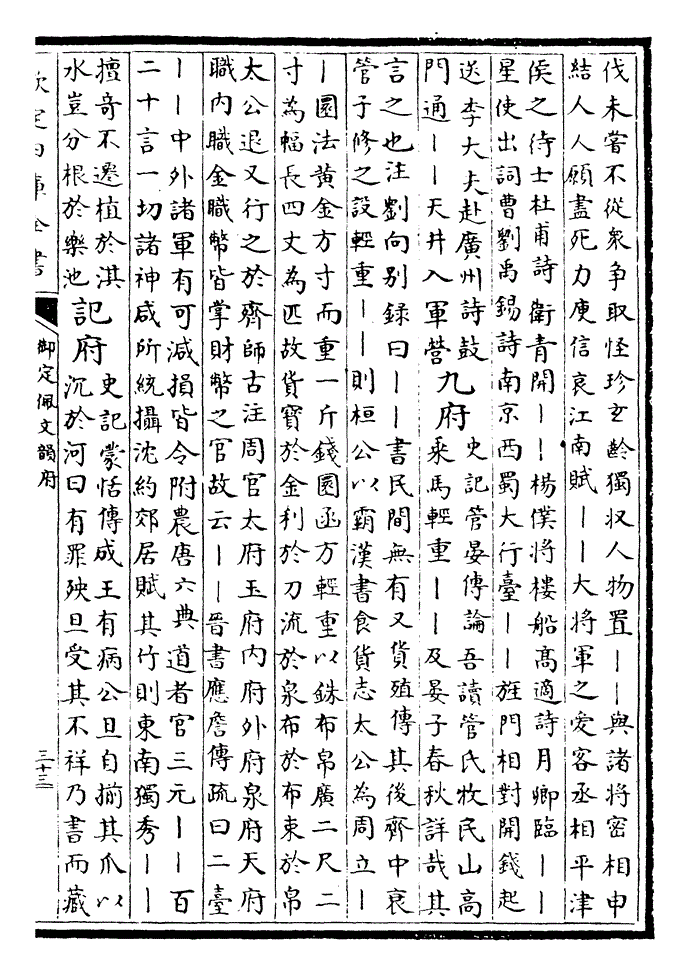 伐未嘗不從衆爭取怪珍玄齡獨収人物置――與諸將密相申
結人人願盡死力庾信哀江南賦――大將軍之愛客丞相平津
侯之待士杜甫詩衛青開――楊僕將樓船高適詩月卿臨――
星使出詞曹劉禹錫詩南京西蜀大行臺――旌門相對開錢起
送李大夫赴廣州詩鼓
門通――天井入軍營
九府
史記管晏傳論吾讀管氏牧民山高
乘馬輕重――及晏子春秋詳哉其
言之也注劉向别録曰――書民間無有又貨殖傳其後齊中衰
管子修之設輕重――則桓公以霸漢書食貨志太公為周立―
―圜法黄金方寸而重一斤錢圜函方輕重以銖布帛廣二尺二
寸為幅長四丈為匹故貨寶於金利於刀流於泉布於布束於帛
太公退又行之於齊師古注周官太府玉府内府外府泉府天府
職内職金職幣皆掌財幣之官故云――晉書應詹傳疏曰二臺
――中外諸軍有可減損皆令附農唐六典道者官三元――百
二十言一切諸神咸所統攝沈約郊居賦其竹則東南獨秀――
擅奇不遷植於淇
水豈分根於樂池
記府
史記蒙恬傳成王有病公旦自揃其爪以
沉於河曰有罪殃旦受其不祥乃書而藏
欽定四庫全書
御定佩文韻府
三十三